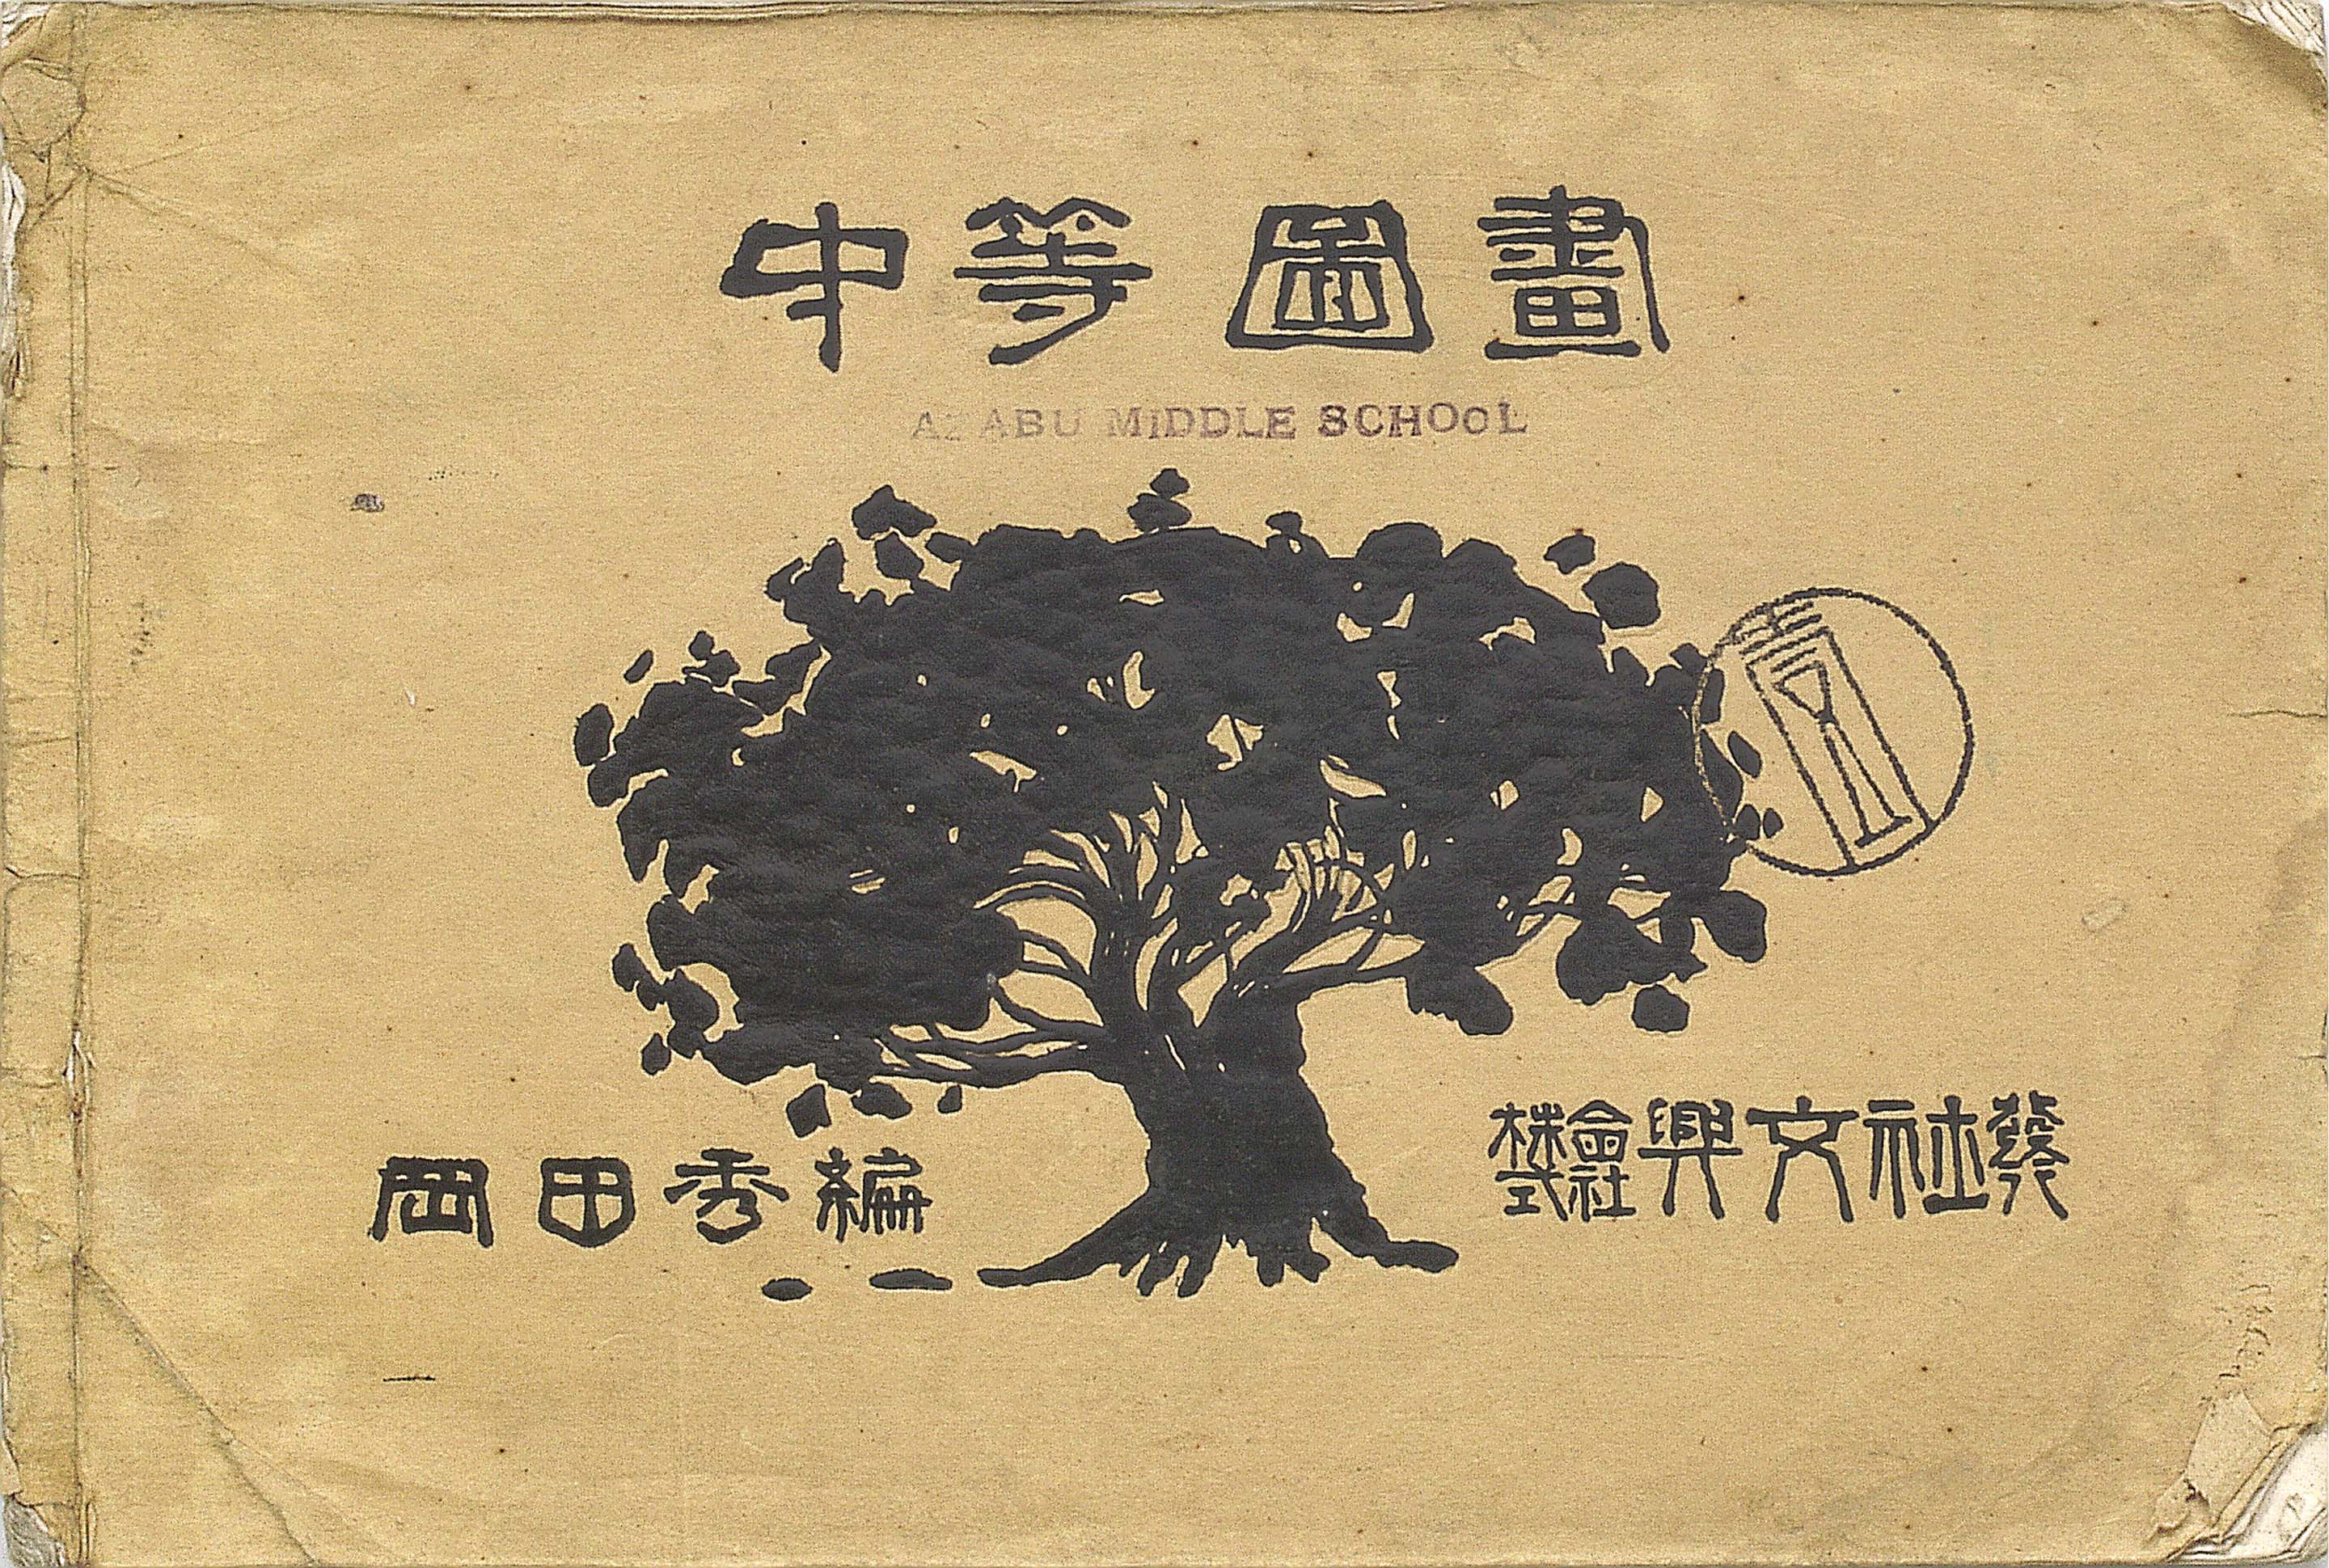 中等圖畫
AZABU MIDDLE SCHOOL
岡田秀編
株式會社興文社發